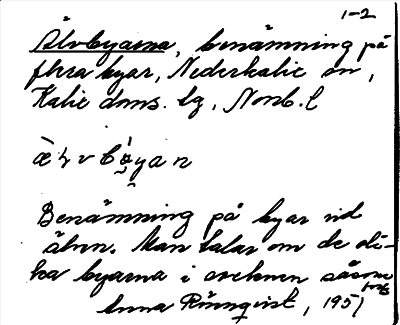 1-2
Älvbyarna, benämning på
flera byar, Nederkalix sn,
Kalix doms. lg, Norrb. l
Benämning på byar vid
älven. Man talar om de oli-
ka byarna i socknen såsom
Anna Rönnqvist, 1951